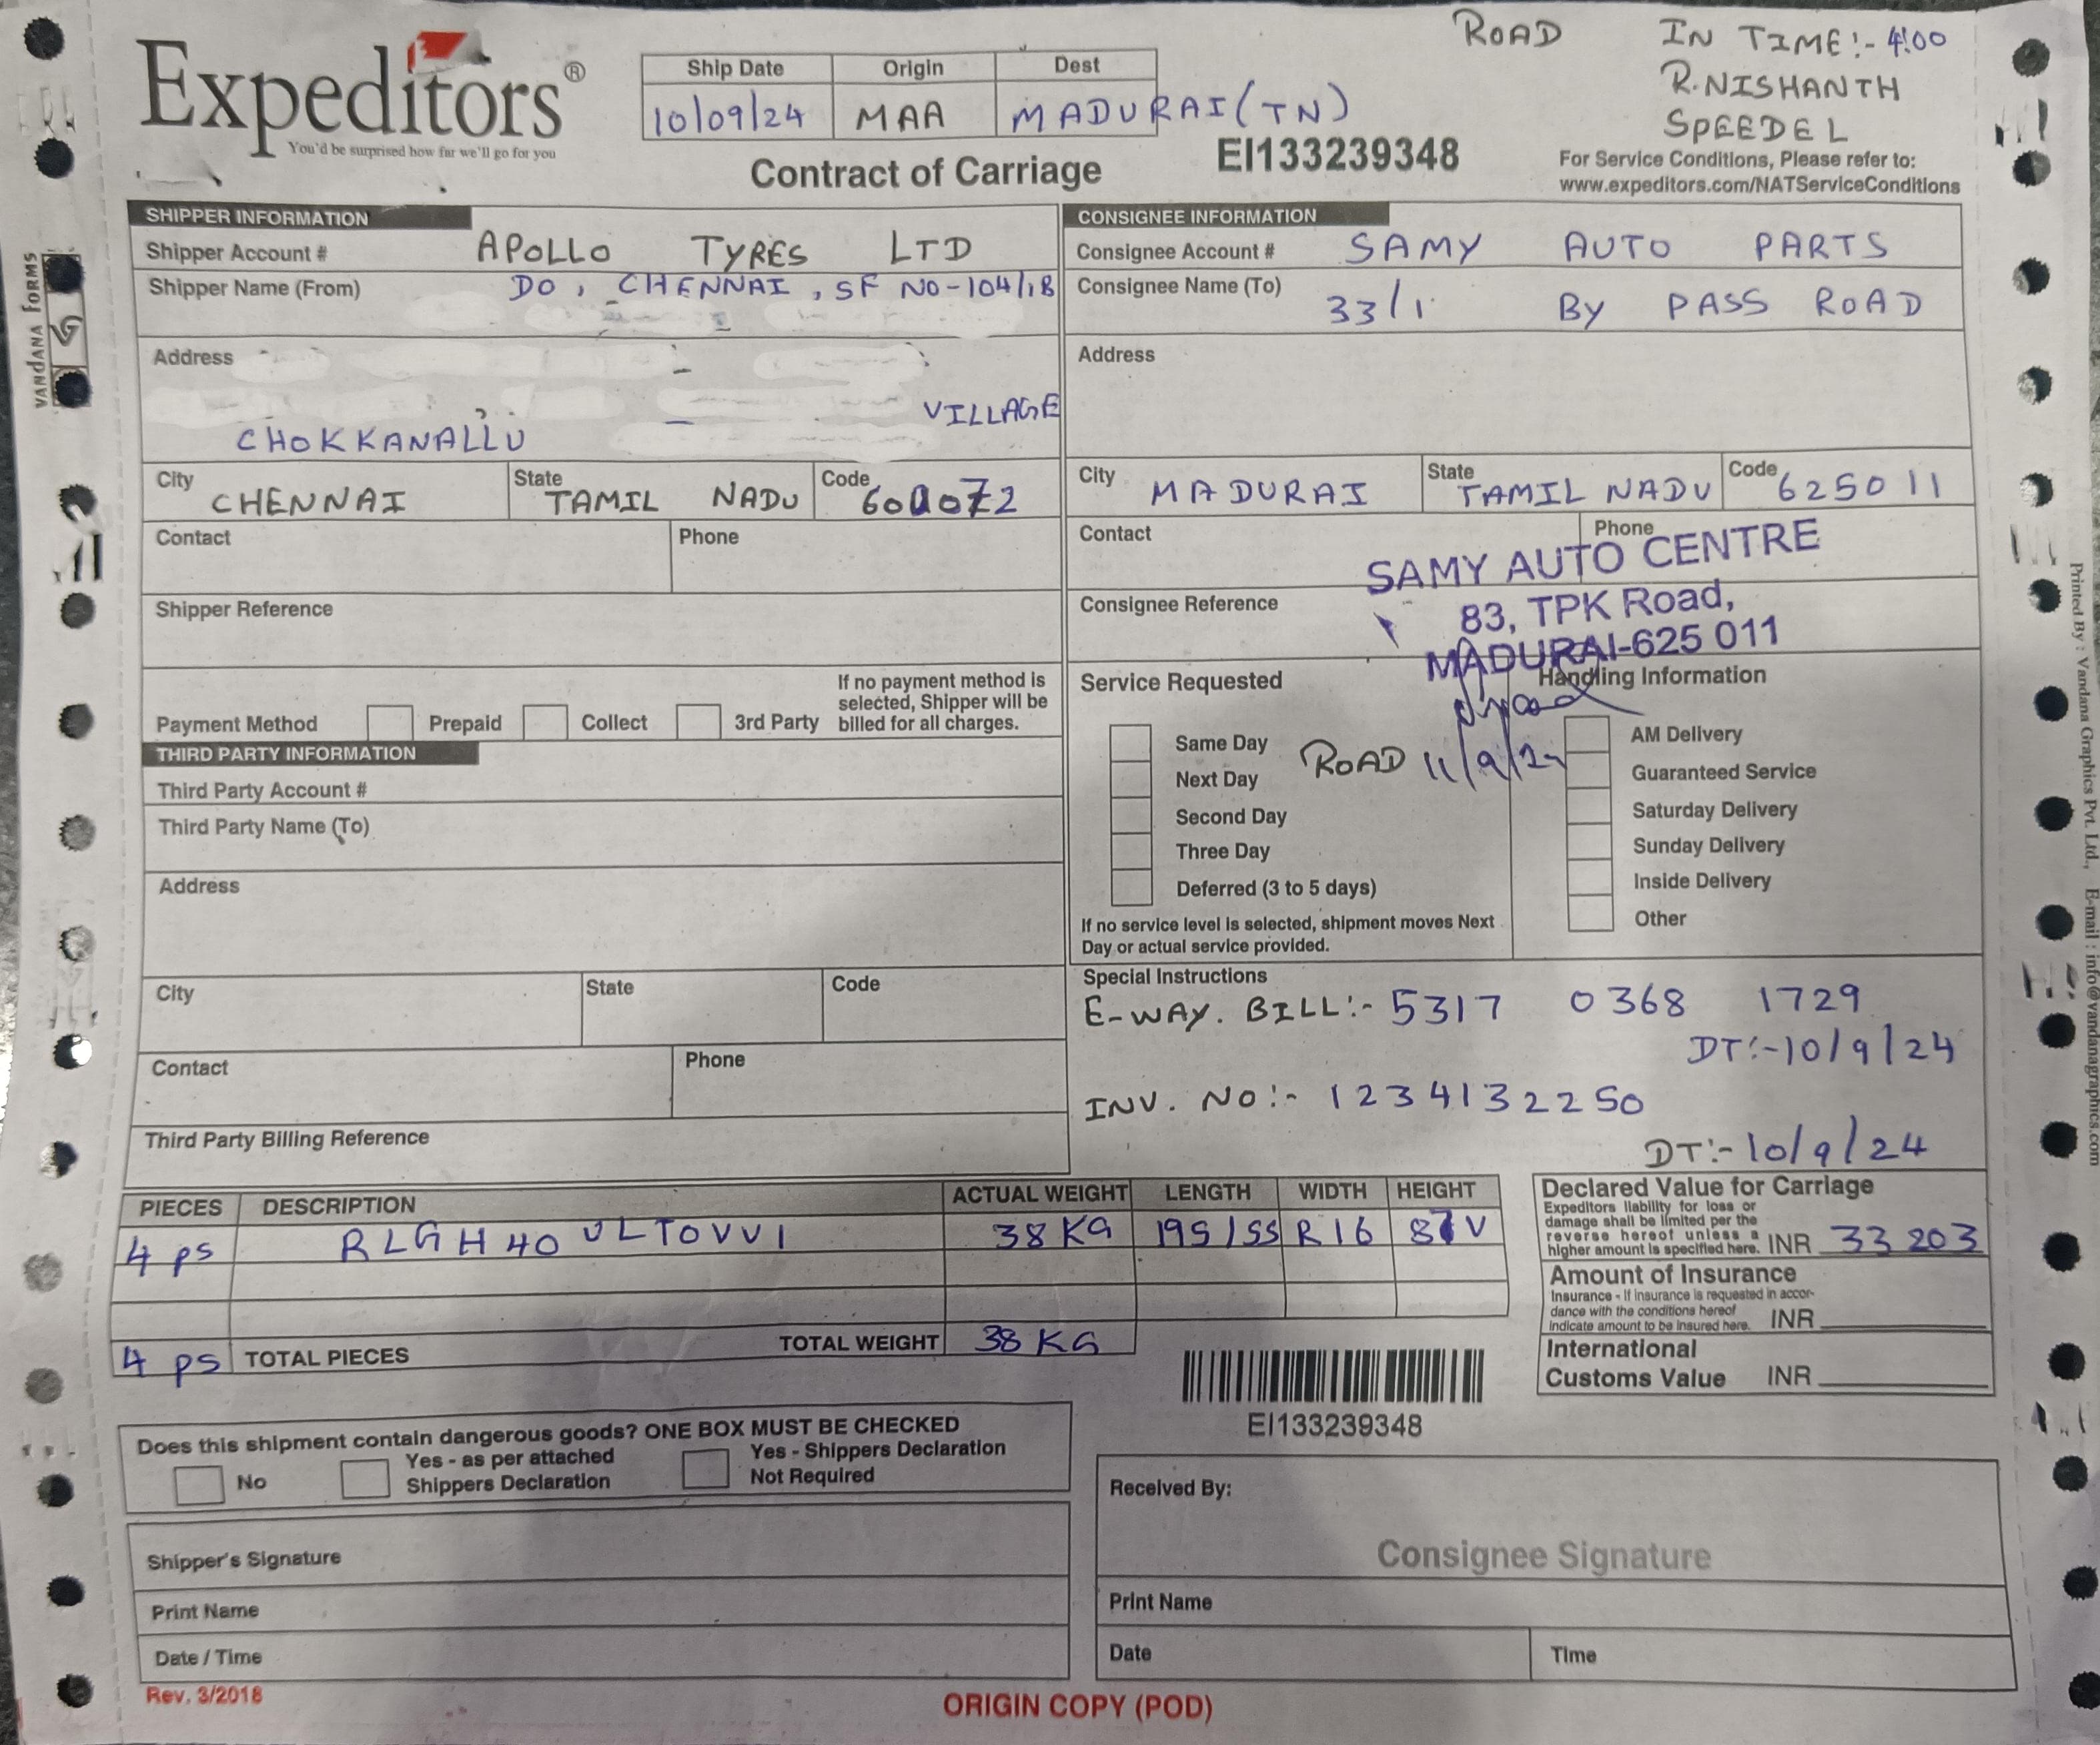 ROAD
IN TIME:- 4:00
R.NISHANTH
SPEEDEL
Expeditors®
You'd be surprised how far we'll go for you
Ship Date Origin Dest
10/09/24 MAA MADURAI (TN)
Contract of Carriage
EI133239348
For Service Conditions, Please refer to:
www.expeditors.com/NATServiceConditions
VANDANA FORMS
SHIPPER INFORMATION
Shipper Account # APOLLO TYRES LTD
Shipper Name (From) DO, CHENNAI, SF NO-104/1B
Address
VILLAGE
CHOKKANALLU
City CHENNAI State TAMIL NADU Code 600072
Contact Phone
Shipper Reference
Payment Method Prepaid Collect 3rd Party
If no payment method is
selected, Shipper will be
billed for all charges.
THIRD PARTY INFORMATION
Third Party Account #
Third Party Name (To)
Address
City State Code
Contact Phone
Third Party Billing Reference
CONSIGNEE INFORMATION
Consignee Account # SAMY AUTO PARTS
Consignee Name (To) 33/1 BY PASS ROAD
Address
City MADURAI State TAMIL NADU Code 625011
Contact Phone
SAMY AUTO CENTRE
83, TPK Road,
MADURAI-625 011
Consignee Reference
Service Requested
Same Day
Next Day
Second Day
Three Day
Deferred (3 to 5 days)
ROAD 11/9/2
If no service level is selected, shipment moves Next
Day or actual service provided.
Handling Information
AM Delivery
Guaranteed Service
Saturday Delivery
Sunday Delivery
Inside Delivery
Other
Special Instructions
E-WAY. BILL:- 5317 0368 1729
DT:-10/9/24
INV. NO:- 1234132250
DT:-10/9/24
PIECES DESCRIPTION ACTUAL WEIGHT LENGTH WIDTH HEIGHT
4 ps RLGH40 ULTOVV1 38 KG 195/55 R16 87V
4 ps TOTAL PIECES TOTAL WEIGHT 38 KG
Declared Value for Carriage
Expeditors liability for loss or
damage shall be limited per the
reverse hereof unless a
higher amount is specified here. INR 33203
Amount of Insurance
Insurance - If insurance is requested in accor-
dance with the conditions hereof
indicate amount to be insured here. INR
International
Customs Value INR
EI133239348
Does this shipment contain dangerous goods? ONE BOX MUST BE CHECKED
No
Yes - as per attached
Shippers Declaration
Yes - Shippers Declaration
Not Required
Shipper's Signature
Print Name
Date / Time
Received By:
Consignee Signature
Print Name
Date Time
Rev. 3/2018
ORIGIN COPY (POD)
Printed By : Vandana Graphics Pvt. Ltd., E-mail : info@vandanagraphics.com